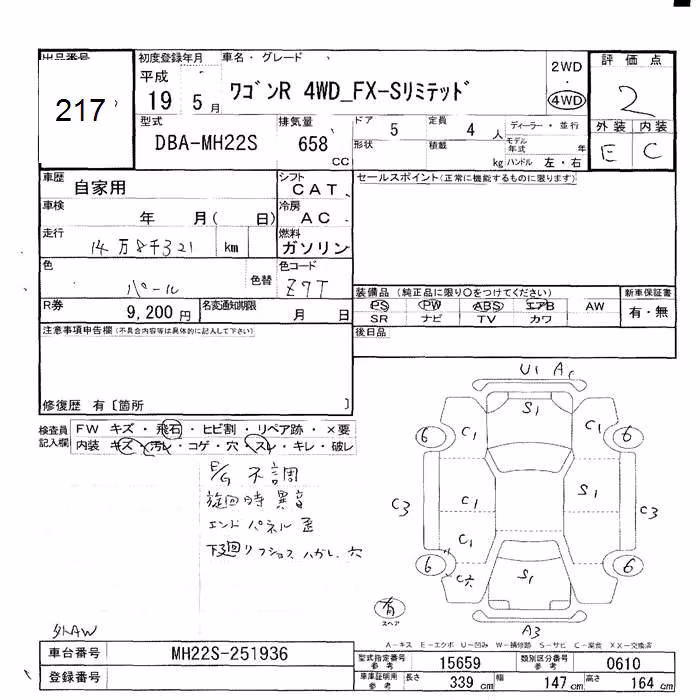 出品番号 初度登録年月 車名・グレード 2WD 評価点
217 平成 19 5月 ワゴンR 4WD_FX-Sリミテッド ・ 4WD 2
型式 DBA-MH22S 排気量 658 CC ドア 5 定員 4 人 ディーラー・並行 外装 内装
形状 積載 kg モデル年式 年 E C
ハンドル 左・右
車歴 自家用 シフト CAT、 セールスポイント(正常に機能するものに限ります)
車検 年 月( 日) 冷房 AC
走行 14万8千321 km 燃料 ガソリン
色 パール 色替 色コード Z7T
装備品 (純正品に限り○をつけてください) 新車保証書
R券 9,200円 名変通知期限 月 日 PS PW ABS エアB AW 有・無
SR ナビ TV カワ
注意事項申告欄(不具合内容等は具体的に記入して下さい) 後日品
修復歴 有〔箇所 〕
検査員記入欄 FW キズ・飛石・ヒビ割・リペア跡・×要
内装 キズ・汚レ・コゲ・穴・スレ・キレ・破レ
E/G 不調
旋回時 異音
エンドパネル歪
下廻り
U1 A
S1
C1 C1
6 6
C3 C1 S1 C3
C1 C1
6 6
C穴 S1
有
スペア
A3
外AW
A-キズ E-エクボ U-凹み W-補修跡 S-サビ C-腐食 XX-交換済
車台番号 MH22S-251936 型式指定番号参考 15659 類別区分番号参考 0610
登録番号 車庫証明用参考 長さ 339 cm 幅 147 cm 高さ 164 cm